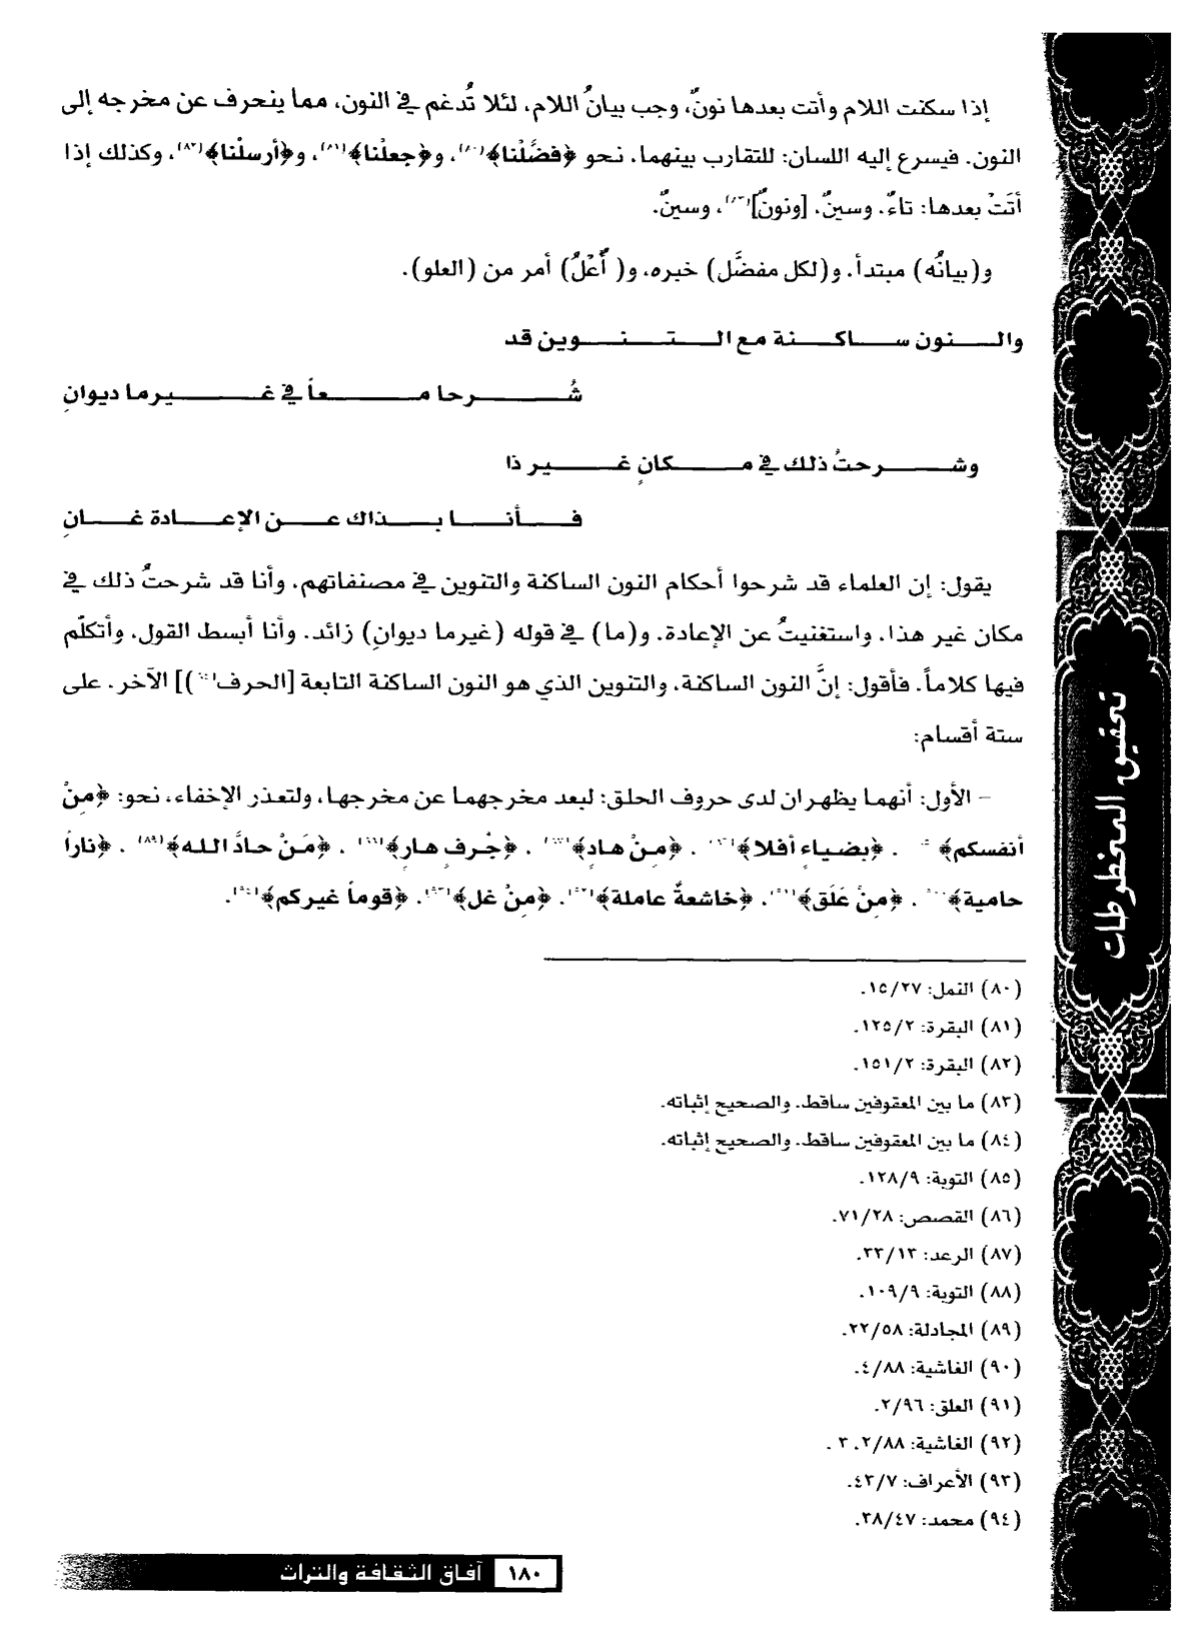 إذا سكنت اللام وأتت بعدها نونٌ، وجب بيانُ اللام، لئلا تُدغم في النون، مما ينحرف عن مخرجه إلى
النون. فيسرع إليه اللسان: للتقارب بينهما. نحو ﴿فضَّلْنا﴾(٨٠)، و﴿جعلْنا﴾(٨١)، و﴿أرسلْنا﴾(٨٢)، وكذلك إذا
أتَتْ بعدها: تاءٌ. وسينٌ. [ونونٌ](٨٣)، وسينٌ.
و(بيانُه) مبتدأ. و(لكل مفضَّل) خبره، و( أُعْلُ) أمر من (العلو).
والنون ساكنة مع التنوين قد
شُرحا معاً في غيرما ديوانِ
وشرحتُ ذلك في مكانٍ غير ذا
فأنا بذاك عن الإعادة غانِ
يقول: إن العلماء قد شرحوا أحكام النون الساكنة والتنوين في مصنفاتهم. وأنا قد شرحتُ ذلك في
مكان غير هذا. واستغنيتُ عن الإعادة. و(ما) في قوله (غيرما ديوانِ) زائد. وأنا أبسط القول، وأتكلّم
فيها كلاماً. فأقول: إنَّ النون الساكنة. والتنوين الذي هو النون الساكنة التابعة [الحرف(٨٤)] الآخر. على
ستة أقسام:
– الأول: أنهما يظهران لدى حروف الحلق: لبعد مخرجهما عن مخرجها، ولتعذر الإخفاء، نحو: ﴿مِنْ
أنفسكم﴾ . ﴿بضياءٍ أفلا﴾(٨٦) . ﴿مِنْ هادٍ﴾(٨٧) . ﴿جُرفٍ هارٍ﴾(٨٨) . ﴿مَنْ حادَّ الله﴾(٨٩) . ﴿ناراً
حامية﴾ . ﴿مِنْ عَلَق﴾(٩١). ﴿خاشعةٌ عاملة﴾(٩٢). ﴿مِنْ غل﴾(٩٣). ﴿قوماً غيركم﴾(٩٤).
(٨٠) النمل: ١٥/٢٧.
(٨١) البقرة: ١٢٥/٢.
(٨٢) البقرة: ١٥١/٢.
(٨٣) ما بين المعقوفين ساقط. والصحيح إثباته.
(٨٤) ما بين المعقوفين ساقط. والصحيح إثباته.
(٨٥) التوبة: ١٢٨/٩.
(٨٦) القصص: ٧١/٢٨.
(٨٧) الرعد: ٣٣/١٣.
(٨٨) التوبة: ١٠٩/٩.
(٨٩) المجادلة: ٢٢/٥٨.
(٩٠) الغاشية: ٤/٨٨.
(٩١) العلق: ٢/٩٦.
(٩٢) الغاشية: ٢/٨٨. ٣ .
(٩٣) الأعراف: ٤٣/٧.
(٩٤) محمد: ٣٨/٤٧.
تحقيق المخطوطات
١٨٠ آفاق الثقافة والتراث